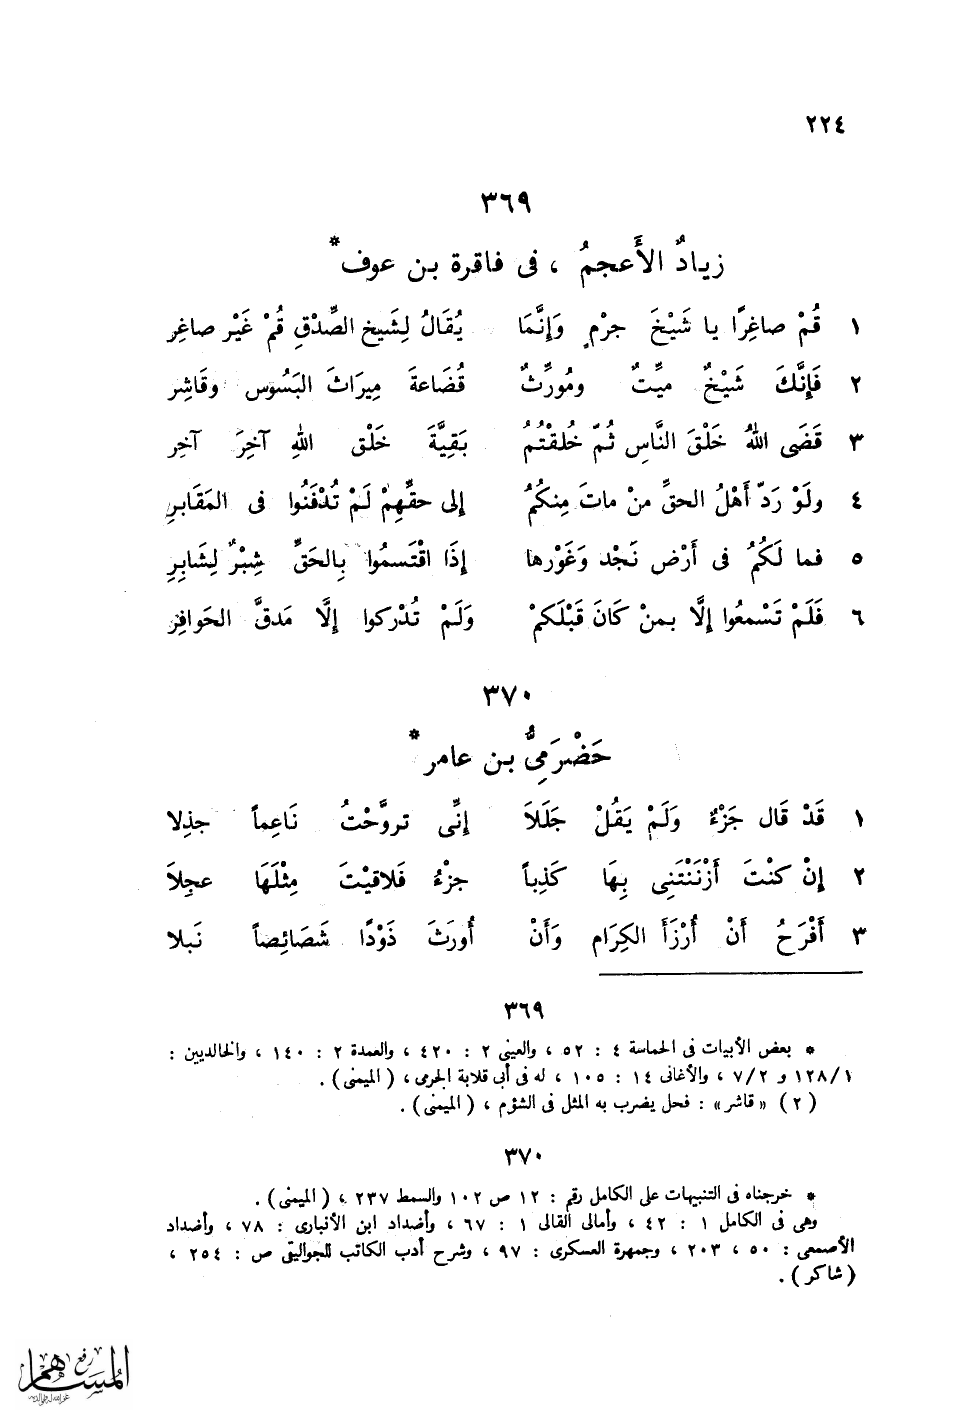 ٢٢٤
٣٦٩
زيادٌ الأَعجمُ ، فى فاقرة بن عوف*
١ قُمْ صاغِرًا يا شَيْخَ جرْمٍ وَإنَّمَا يُقَالُ لِشَيخ الصِّدْقِ قُمْ غَيْر صاغِرِ
٢ فَإِنَّكَ شَيْخٌ ميِّتٌ ومُورِّثٌ قُضَاعةَ مِيرَاثَ البَسُوسِ وقَاشِر
٣ قَضَى اللهُ خَلْقَ النَّاسِ ثُمّ خُلقْتُمُ بَقِيَّةَ خَلْق اللهِ آخِرَ آخِر
٤ ولَوْ رَدّ أَهْلُ الحقِّ منْ ماتَ مِنكُمُ إلى حقِّهِمْ لَمْ تُدْفَنُوا فى المَقَابرِ
٥ فما لَكُمُ فى أَرْض نَجْد وَغَوْرها إذَا اقْتَسمُوا بِالحَقِّ شِبْرٌ لِشَابِرِ
٦ فَلَمْ تَسْمعُوا إلَّا بمنْ كَانَ قَبْلَكمْ وَلَمْ تُدْركوا إلَّا مَدقَّ الحَوافِرِ
٣٧٠
حَضْرَمِىُّ بن عامر*
١ قَدْ قَال جَزْءٌ وَلَمْ يَقُلْ جَلَلاَ إنِّى تروَّحْتُ نَاعِماً جذِلا
٢ إنْ كنْتَ أَزْنَنْتَنِى بِهَا كَذِباً جزْءُ فَلاقيْتَ مِثْلَهَا عجِلاَ
٣ أَفْرَحُ أَنْ أُرْزَأَ الكِرَام وَأَنْ أُورَثَ ذَوْدًا شَصَائِصاً نَبلا
٣٦٩
* بعض الأبيات فى الحماسة ٤ : ٥٢ ، والعينى ٢ : ٤٢٠ ، والعمدة ٢ : ١٤٠ ، والخالديين :
١٢٨/١ و ٧/٢ ، والأغانى ١٤ : ١٠٥ ، له فى أبى قلابة الجرمى ، ( الميمنى ) .
( ٢ ) « قاشر» : فحل يضرب به المثل فى الشؤم ، ( الميمنى ) .
٣٧٠
* خرجناه فى التنبيهات على الكامل رقم : ١٢ ص ١٠٢ والسمط ٢٣٧ ، ( الميمنى ) .
وهى فى الكامل ١ : ٤٢ ، وأمالى القالى ١ : ٦٧ ، وأضداد ابن الأنبارى : ٧٨ ، وأضداد
الأصمعى : ٥٠ ، ٢٠٣ ، وجمهرة العسكرى : ٩٧ ، وشرح أدب الكاتب للجواليقى ص : ٢٥٤ ،
( شاكر ) .
رفع
المساهم